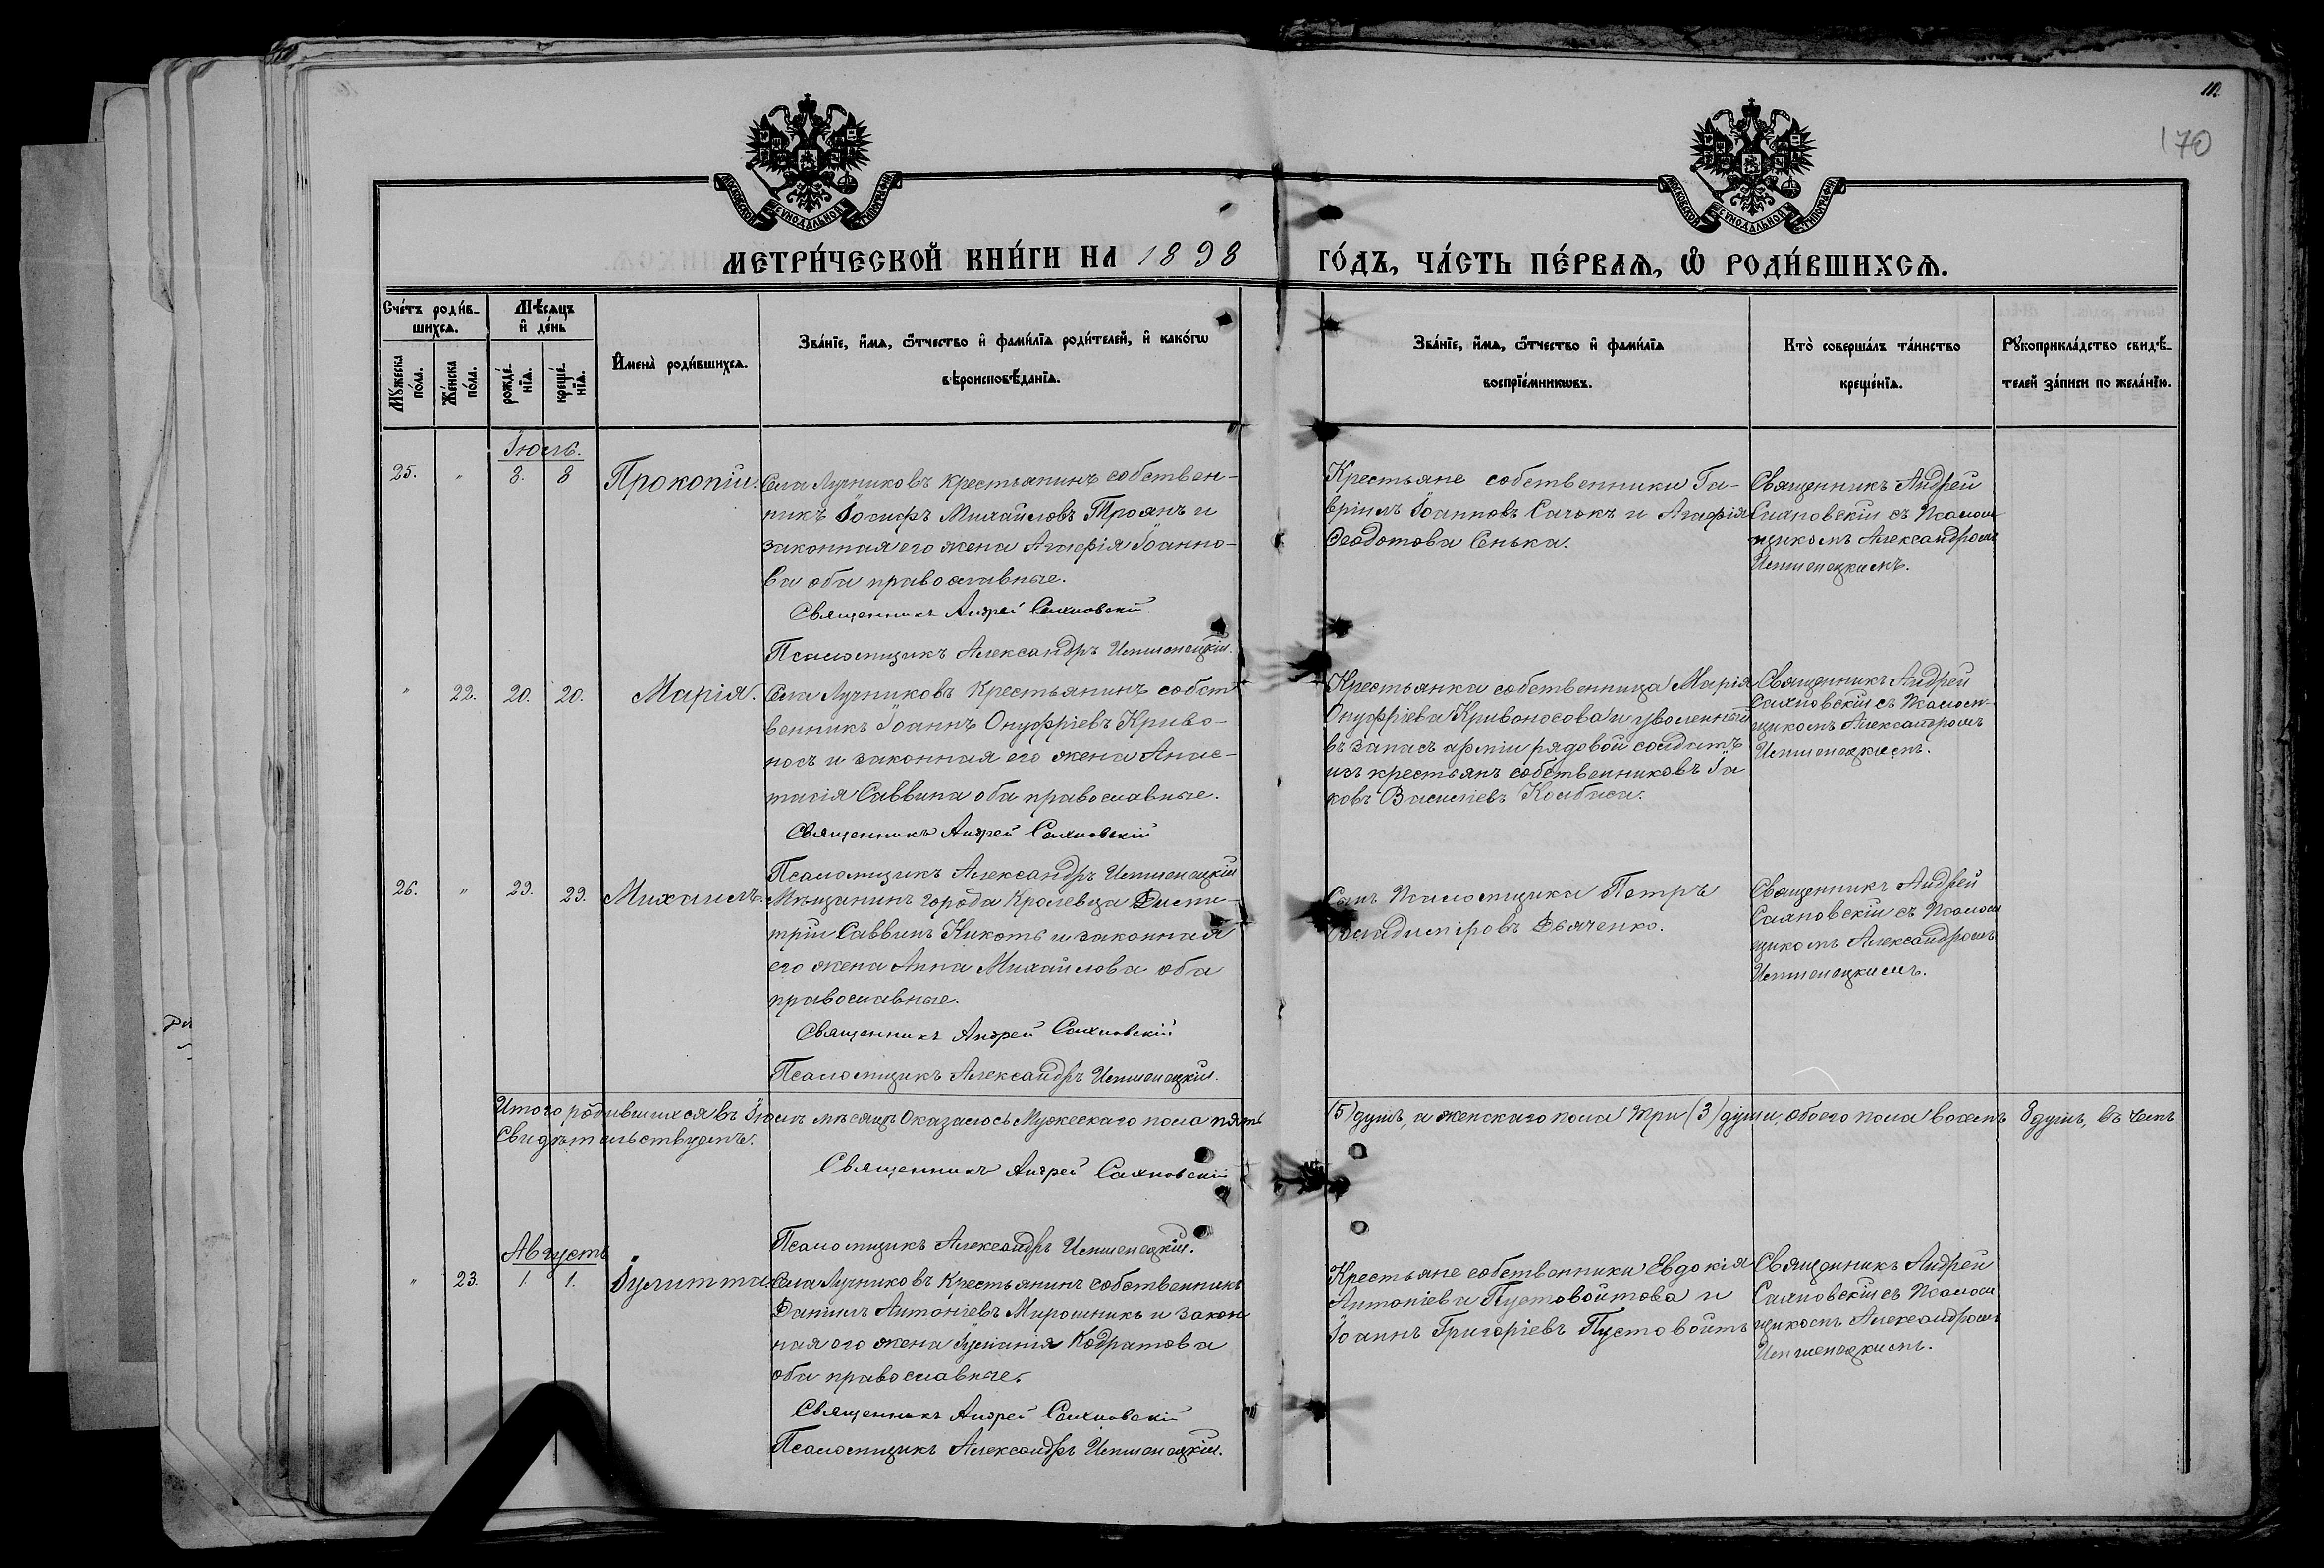 10.
170
МОСКОВСКОЙ СѴНОДАЛЬНОЙ ТИПОГРАФІИ
МОСКОВСКОЙ СѴНОДАЛЬНОЙ ТИПОГРАФІИ
МЕТРИ́ЧЕСКОЙ КНИ́ГИ НА 1898 ГО́ДЪ, ЧА́СТЬ ПЕ́РВАѦ, Ѡ҆ РОДИ́ВШИХСѦ.
Сче́тъ роди́в-
шихсѧ.
Мѣ́сѧцъ
и҆ де́нь
Мꙋ́жеска
по́ла.
Же́нска
по́ла.
рожде́-
нїѧ.
креще́-
нїѧ.
И҆мена̀ роди́вшихсѧ.
Зва́нїе, и҆́мѧ, ѻ҆́тчество и҆ фами́лїѧ роди́телей, и҆ како́гѡ
вѣроисповѣ́данїѧ.
Зва́нїе, и҆́мѧ, ѻ҆́тчество и҆ фами́лїѧ
воспрїе́мникѡвъ.
Кто̀ соверша́лъ та́инство
креще́нїѧ.
Рꙋкоприкла́дство свидѣ́-
телей за́писи по жела́нїю.
Іюль.
25. " 8. 8 Прокопій.
Села Лучниковъ крестьянинъ собствен-
никъ Іосифъ Михайловъ Троянъ и
законная его жена Агафія Іоанно-
ва оба православные.
Священникъ Андрей Сахновскій
Псаломщикъ Александръ Иеншенецкій.
Крестьяне собственники Га-
вріилъ Іоанновъ Сачокъ и Агафія
Ѳеодотова Сенька.
Священникъ Андрей
Сахновскій съ Псалом-
щикомъ Александромъ
" 22. 20. 20. Марія.
Села Лучниковъ Крестьянинъ собст
венникъ Іоаннъ Онуфріевъ Криво-
носъ и законная его жена Анас-
тасія Саввина оба православные.
Священникъ Андрей Сахновскій
Псаломщикъ Александръ
Крестьянка собственница Марія
Онуфріева Кривоносова и уволенный
въ запасъ арміи рядовой солдатъ
изъ крестьянъ собственниковъ Іа
ковъ Василіевъ Колбаса.
Священникъ Андрей
Сахновскій съ Псалом-
щикомъ Александромъ
26. " 29. 29. Михаилъ.
Мѣщанинъ города Кролевца Дими-
трій Саввинъ Кикоть и законная
его жена Анна Михайлова оба
православные.
Священникъ Андрей Сахновскій
Псаломщикъ Александръ
Сынъ Псаломщика Петръ
Владиміровъ Дьяченко.
Священникъ Андрей
Сахновскій съ Псалом
щикомъ Александромъ
Итого родившихся въ Іюлѣ мѣсяцѣ Оказалось Мужескаго пола пять (5) душъ, а женскаго пола три (3) души, обоего пола восемь 8 душъ, въ чемъ
Свидѣтельствуемъ:
Священникъ Андрей Сахновскій
Псаломщикъ Александръ
Августъ
" 23. 1. 1. Іулитта.
Села Лучниковъ Крестьянинъ собственникъ
Даніилъ Антоніевъ Мирошникъ и закон
ная его жена Іуліанія Кодратова
оба православные.
Священникъ Андрей Сахновскій
Псаломщикъ Александръ
Крестьяне собственники Евдокія
Антоніева Пустовойтова и
Іоаннъ Григоріевъ Пустовойтъ
Священникъ Андрей
Сахновскій съ Псалом
щикомъ Александромъ